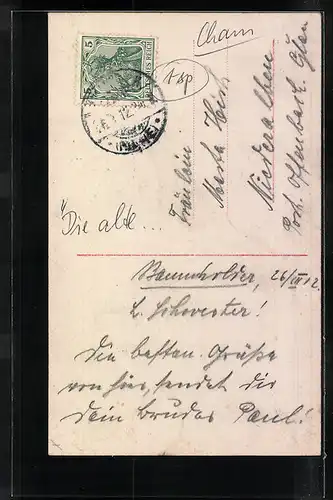 Cham
5 5
DEUTSCHES REICH
Asp
26.3.12
Fräulein
Marta Heich
Niederalben
Post Offenbach Glan
"Die alte...
Baumholder, 26/III 12.
L. Schwester!
Die besten Grüße
von hier, sendet dir
dein Bruder Paul!